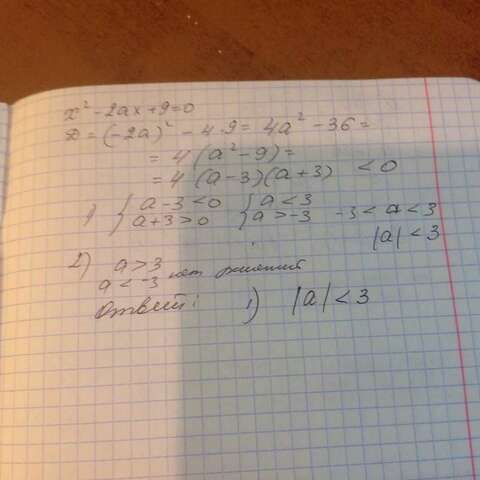 x² - 2ax + 9 = 0
D = (-2a)² - 4·9 = 4a² - 36 =
= 4(a² - 9) =
= 4(a-3)(a+3) < 0
1) { a - 3 < 0 { a < 3
a + 3 > 0 a > -3 -3 < a < 3
|a| < 3
2) a > 3
a < -3 нет решений
Ответ: 1) |a| < 3